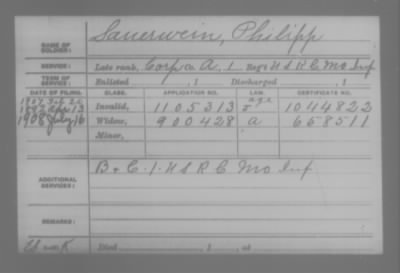 NAME OF SOLDIER: Sauerwein, Philipp
SERVICE: Late rank, Corp Co. A, 1 Reg't U S R C Mo Inf
TERM OF SERVICE: Enlisted , 1 Discharged , 1
DATE OF FILING. CLASS. APPLICATION NO. LAW. CERTIFICATE NO.
1907 Feb 26
age
Apr 13 Invalid, 1105313 1044822
1908 July 16 Widow, 900428 a 658511
Minor,
ADDITIONAL SERVICES: B & C. 1. U S R C Mo Inf
REMARKS:
Died , 1 , at